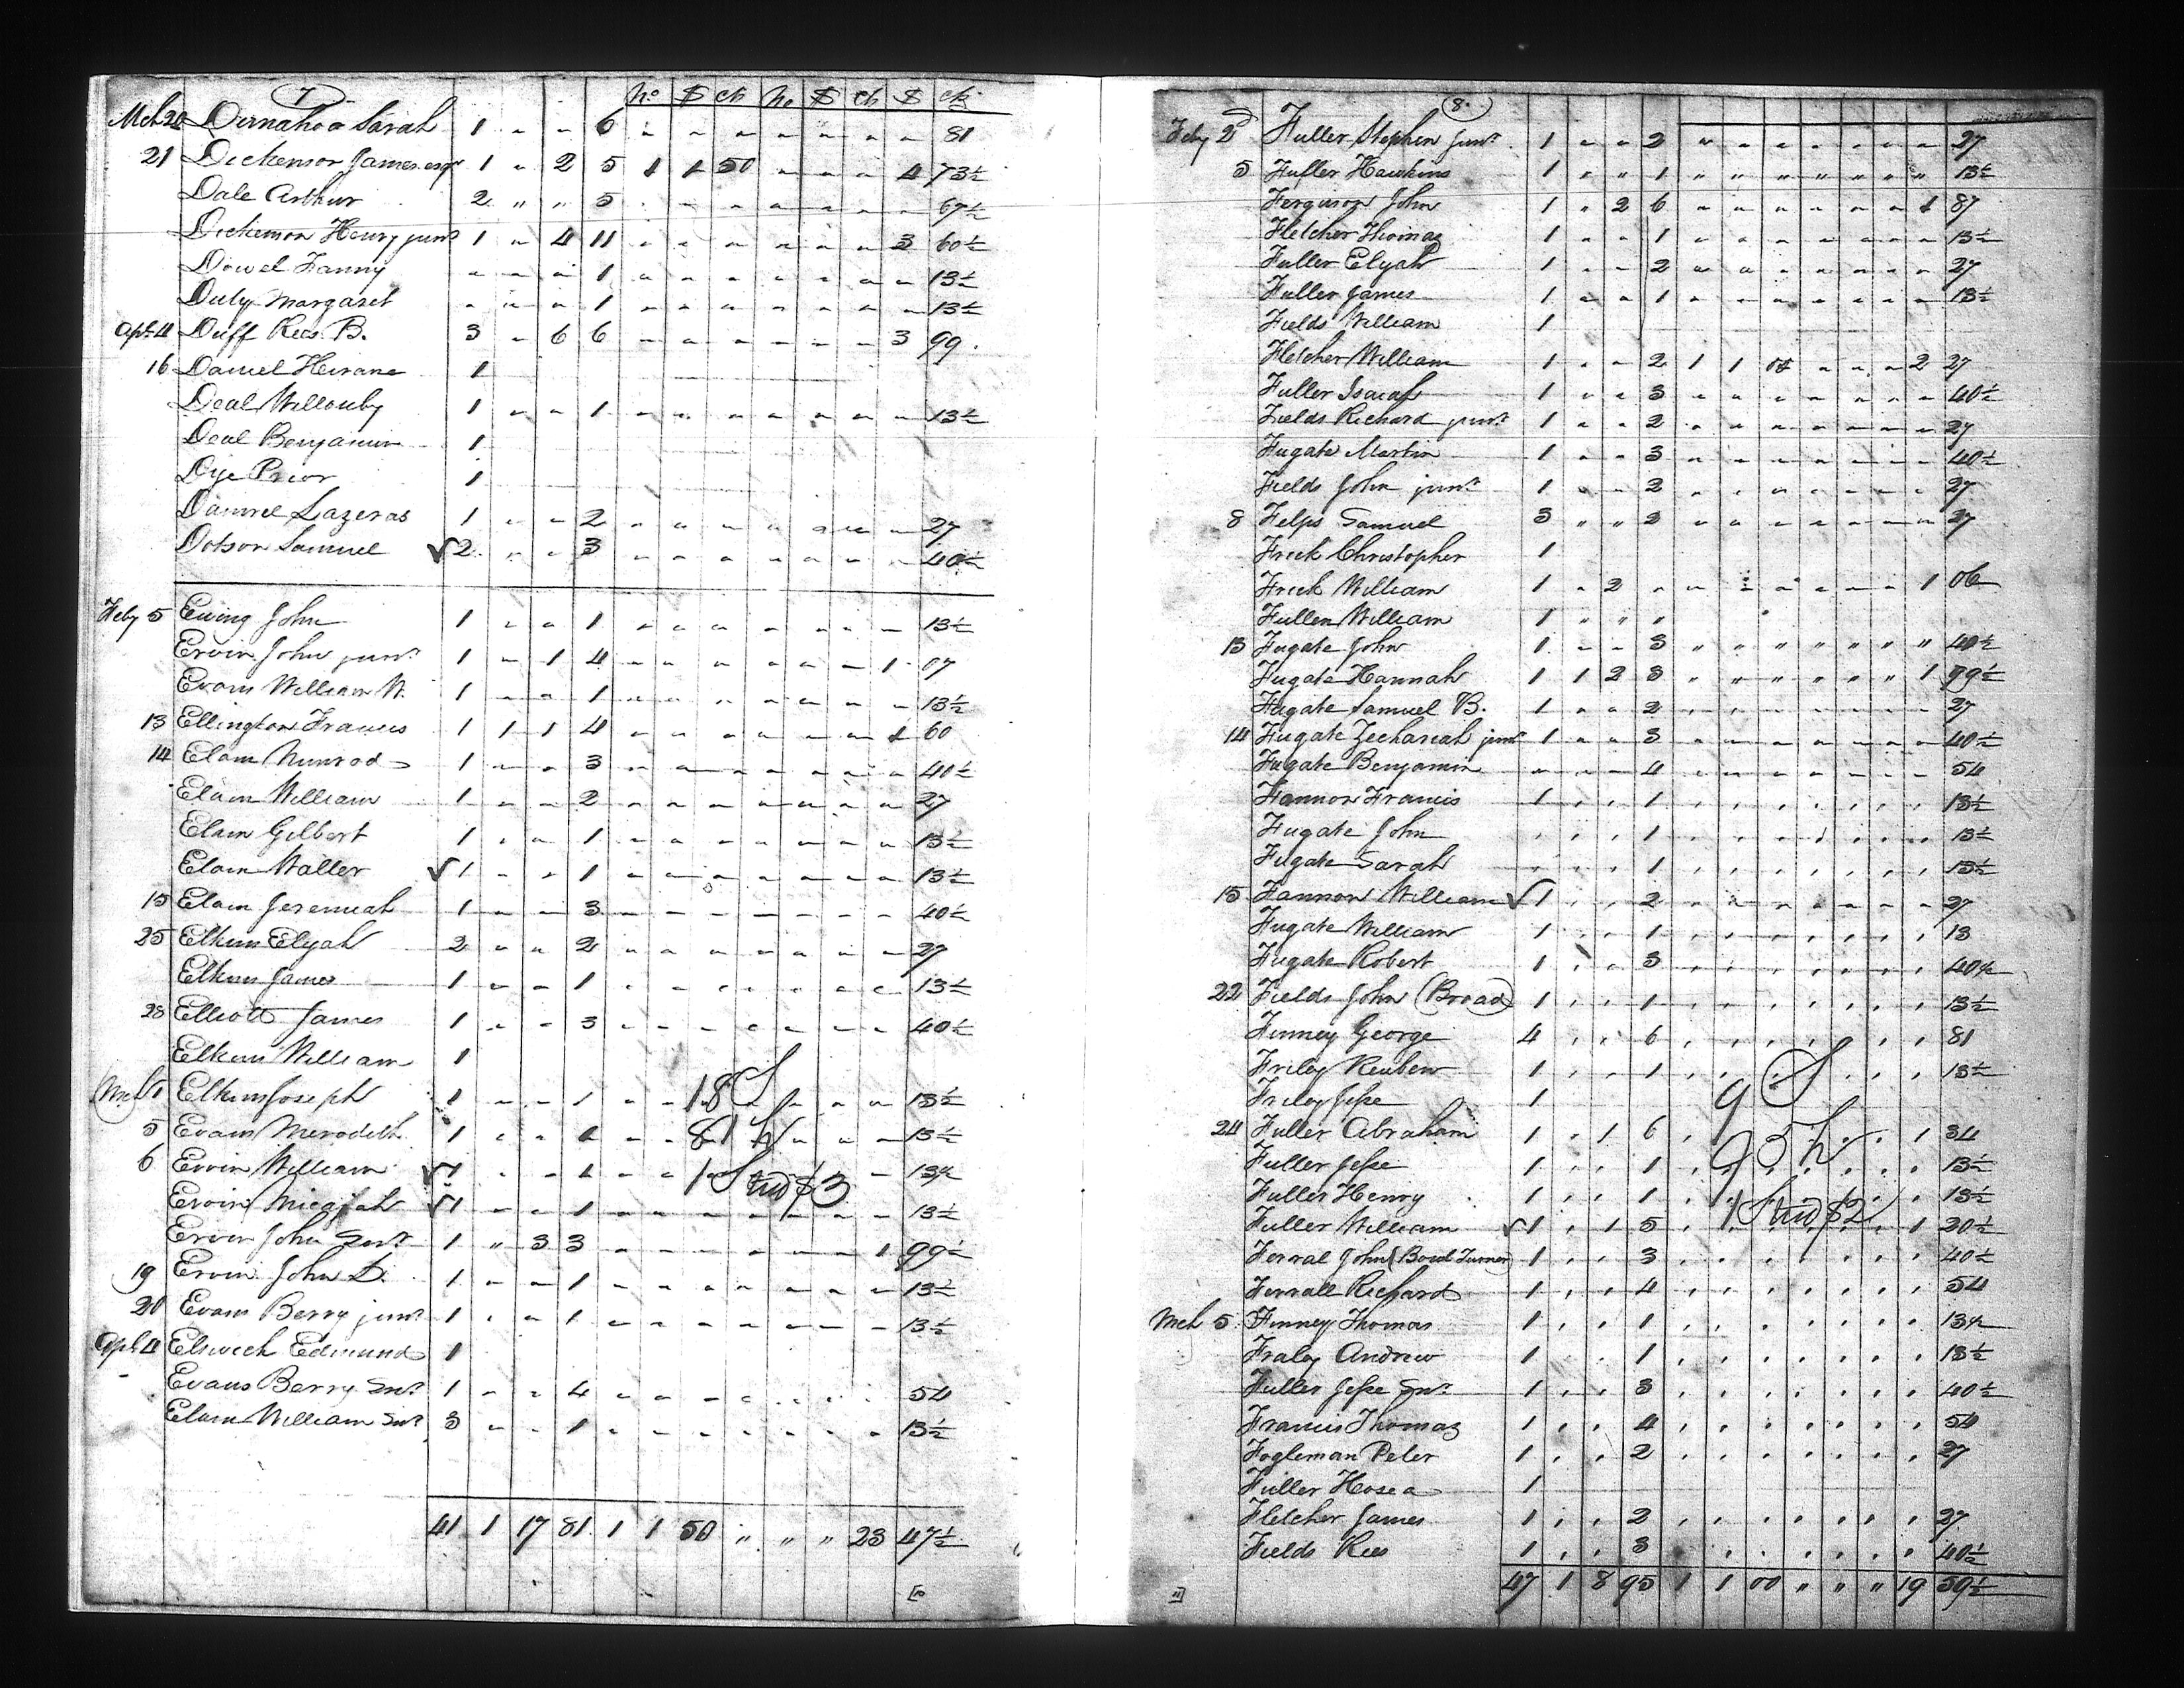 7
No $ cts No $ cts $ cts
Mch 20 Dunahoo Sarah 1 - - 6 - - - - - - - 81
21 Dickenson James esqr 1 - 2 5 1 1 50 - - - 4 73½
Dale Arthur 2 " " 5 - - - - - - - 67½
Dickenson Henry junr 1 - 4 11 - - - - - - 3 60½
Dowel Fanny - - - 1 - - - - - - - 13½
Duty Margaret - - - 1 - - - - - - - 13½
Apl 4 Duff Rees B. 3 - 6 6 - - - - - - 3 99
16 Daniel Hiram 1
Deal Willouby 1 - - 1 - - - - - - - 13½
Deal Benjamin 1
Dye Prior 1
Daniel Lazeras 1 - - 2 - - - - - - - 27
Dotson Samuel √2 - - 3 - - - - - - - 40½
Feby 5 Ewing John 1 - - 1 - - - - - - - 13½
Ervin John junr 1 - 1 4 - - - - - - 1 07
Evans William W. 1 - - 1 - - - - - - - 13½
13 Ellington Francis 1 1 1 4 - - - - - - 1 60
14 Elam Nimrod 1 - - 3 - - - - - - - 40½
Elam William 1 - - 2 - - - - - - - 27
Elam Gilbert 1 - - 1 - - - - - - - 13½
Elam Waller √1 - - 1 - - - - - - - 13½
15 Elam Jeremiah 1 - - 3 - - - - - - - 40½
25 Elkins Elijah 2 - - 2 - - - - - - - 27
Elkins James 1 - - 1 - - - - - - - 13½
28 Elliott James 1 - - 3 - - - - - - - 40½
Elkins William 1
Mch 1 Elkins Joseph 1 - - 1 - - - - - - - 13½
18 S
5 Evans Merodeth 1 - - 1 - - - - - - - 13½
81 h
6 Ervin William √1 - - 1 - - - - - - - 13½
1 Stud $3
Ervin Micajah √1 - - 1 - - - - - - - 13½
Ervin John Senr 1 " 3 3 - - - - - - 1 99½
19 Ervin John D. 1 - - 1 - - - - - - - 13½
20 Evans Berry junr 1 - - 1 - - - - - - - 13½
Apl 4 Elswick Edmund 1
Evans Berry Senr 1 - - 4 - - - - - - - 54
Elam William Senr 3 - - 1 - - - - - - - 13½
41 1 17 81 1 1 50 " " " 23 47½
[10
8.
Feby 2d Fuller Stephen junr 1 - - 2 - - - - - - - 27
5 Fuller Hawkins 1 " " 1 " " " " " " " 13½
Ferguson John 1 - 2 6 - - - - - - 1 87
Fletcher Thomas 1 - - 1 - - - - - - - 13½
Fuller Elijah 1 - - 2 - - - - - - - 27
Fuller James 1 - - 1 - - - - - - - 13½
Fields William 1
Fletcher William 1 - - 2 1 1 00 - - - 2 27
Fuller Isaiah 1 - - 3 - - - - - - - 40½
Fields Richard junr 1 - - 2 - - - - - - - 27
Fugate Martin 1 - - 3 - - - - - - - 40½
Fields John junr 1 - - 2 - - - - - - - 27
8 Felps Samuel 3 " " 2 - - - - - - - 27
Frick Christopher 1
Frick William 1 - 2 - - - - - - - 1 06
Fullen William 1 " " "
13 Fugate John 1 - - 3 " " " " " " " 40½
Fugate Hannah 1 1 2 3 " " " " " " 1 99½
Fugate Samuel B. 1 - - 2 - - - - - - - 27
14 Fugate Zechariah junr 1 - - 3 - - - - - - - 40½
Fugate Benjamin - - - 4 - - - - - - - 54
Fannon Francis 1 , , 1 , , , , , , , 13½
Fugate John , , , 1 , , , , , , , 13½
Fugate Sarah , , , 1 , , , , , , , 13½
15 Fannon William √1 , , 2 - - - - - - - 27
Fugate William 1 , , 1 , , , , , , , 13
Fugate Robert 1 , , 3 , , , , , , , 40½
22 Fields John (Broad) 1 , , 1 , , , , , , , 13½
Finney George 4 , , 6 , , , , , , , 81
Friley Reuben 1 , , 1 , , , , , , , 13½
9 S
Friley Jesse 1
24 Fuller Abraham 1 , 1 6 , , , , , , 1 34
95 h
Fuller Jesse 1 , , 1 , , , , , , , 13½
Fuller Henry 1 , , 1 , , , , , , , 13½
1 Stud $2
Fuller William √1 , 1 5 , , , , , , 1 20½
Ferral John (Bowl Turner) 1 , , 3 , , , , , , , 40½
Ferrall Richard 1 , , 4 , , , , , , , 54
Mch 5 Finney Thomas 1 , , 1 , , , , , , , 13½
Fraley Andrew 1 , , 1 , , , , , , , 13½
Fuller Jesse Senr 1 , , 3 , , , , , , , 40½
Francis Thomas 1 , , 4 , , , , , , , 54
Fogleman Peter 1 , , 2 , , , , , , , 27
Fuller Hosea 1
Fletcher James 1 , , 2 , , , , , , , 27
Fields Rees 1 , , 3 , , , , , , , 40½
47 1 8 95 1 1 00 " " " 19 59½
11]